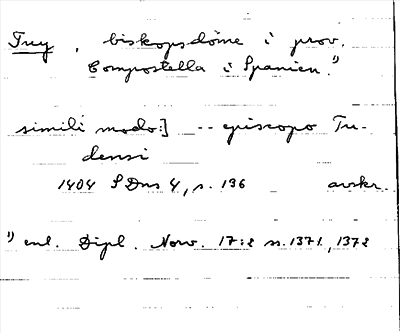 Tuy, biskopsdöme i prov.
Compostella i Spanien.¹⁾
simili modo:] -- episcopo Tu-
densi
1404 SDns 4, s. 136 avskr.
¹⁾ enl. Dipl. Norv. 17:2 n. 1371, 1372